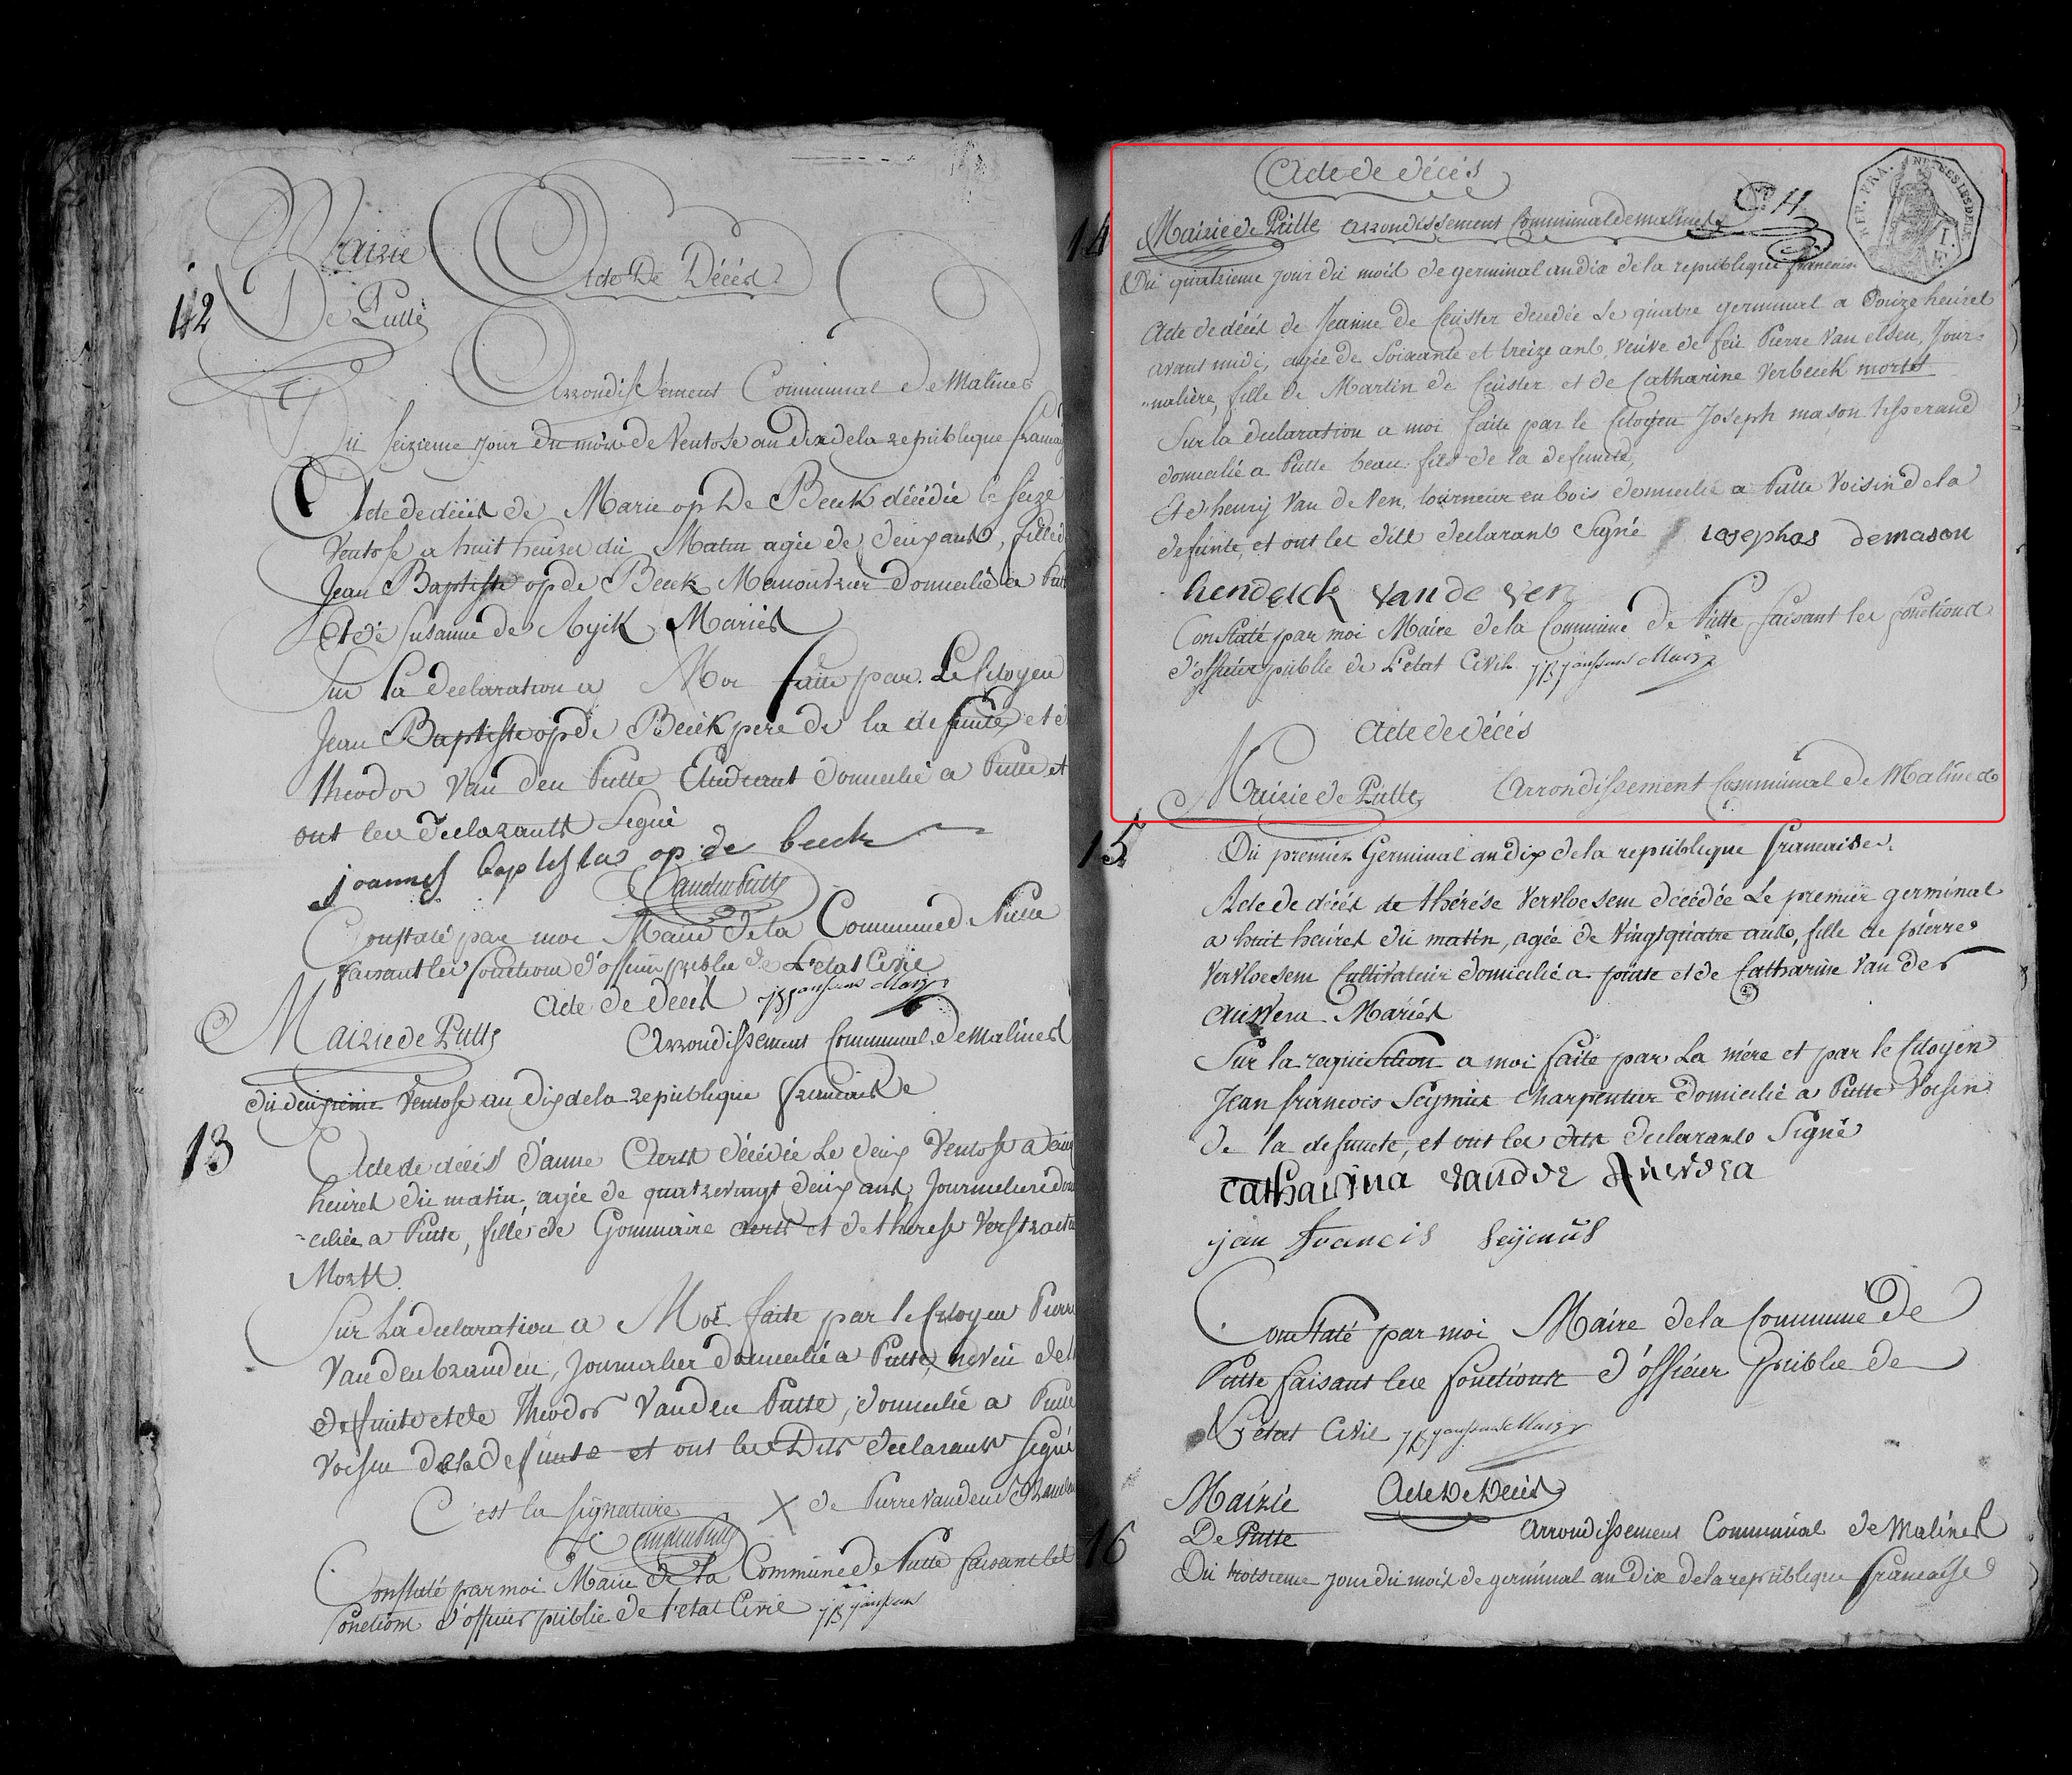 Mairie
De Putte
Acte De Décés
12
Arrondissement Communal De Malines
Du seizieme jour du mois de Ventose an dix de la republique francai
Acte de décés de Marie op De Beek décédée le seize
Ventose a huit heures du Matin agée de deux ans, fille d
Jean Baptiste op de Beek Manouvrier domicilié a Putt
Et de Susanne de Mariés
Sur La declaration a Moi faite par Le Citoyen
Jean Baptiste op de Beek pere de la defunte et d
theodor Van den Putte domicilié a Putte et
ont les declarants Signé
joannes baptistus op de beeck
VandenPutte
Constaté par moi Maire de la Commune de Putte
faisant les fonctions d'officier public de L'etat Civil
Acte de Decés JB janssens Maire
Mairie de Putte Arrondissement Communal de Malines
du deuxieme Ventose an dix de la republique francaise
13
Acte de décés d'anne Aerts décédée Le deux Ventose a deux
heures du matin, agée de quatrevingt deux ans, Journaliere dom
-ciliée a Putte, fille de Gommaire aerts et de therese Verstraete
Morts.
Sur La declaration a Moi faite par le Citoyen Pierre
Vandenbranden, Journalier domicilié a Putte, neveu de l
defunte et de theodor Vanden Putte, domicilié a Putte
voisin de la defunte et ont les Dits declarants signé
C'est la signature X de Pierre Vanden Branden
VandenPutte
Constaté par moi Maire de la Commune de Putte faisant les
fonctions d'officier public de l'etat Civil JB janssens
Acte de décés
14 Mairie de Putte arrondissement Communal de malines
REP. FRA.
Du quatrieme jour du mois de germinal an dix de la republique francais.
Acte de décés de Jeanne de Ceuster decedée Le quatre germinal a Douze heures
avant midi, agée de Soixante et treize ans, veuve de feu Pierre Van elsen, Jour-
-naliére, fille de Martin de Ceuster et de Catharine Verbeeck morts
Sur la declaration a moi faite par le Citoyen Joseph mason tisserand
domicilié a Putte beau fils de la defuncte,
Et d'henry Van de Ven, tourneur en bois domicilié a Putte Voisin de la
defunte, et ont les dits declarants Signé iosephus demason
hendrick van de ven
Constaté par moi Maire de la Commune de Putte faisant les fonctions
d'officier public de L'etat Civil JB janssens Maire
Acte de décés
Mairie de Putte Arrondissement Communal de Malines
15
Du premier Germinal an dix de la republique francaise.
Acte de décés de thérése Vervloesem décédée Le premier germinal
a huit heures du matin, agée de vingtquatre ans, fille de piérre
Vervloesem Cultivateur domicilié a putte et de Catharine Van der
auwera Mariés
Sur la requisition a moi faite par La mére et par le Citoyen
Jean francois Seymus Charpentier domicilié a Putte Voisin
de la defuncte, et ont les dits declarants Signé
catharina vander auwera
jan francis seijmus
Constaté par moi Maire de la Commune de
Putte faisant les fonctions d'officier Public de
L'etat Civil JB janssens Maire
Mairie
De Putte
Acte De Decés
16
Arrondissement Communal de Malines
Du troisieme jour du mois de germinal an dix de la republique francaise